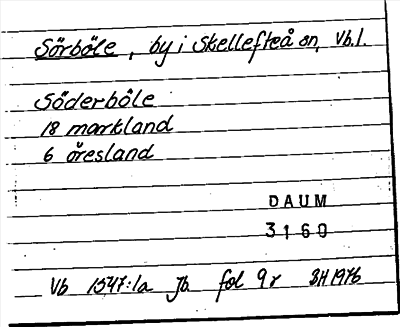 Sörböle, by i Skellefteå sn, Vb.l.
Söderböle
18 markland
6 öresland
DAUM
3160
Vb 1547:1a Jb fol 9r BH 1976